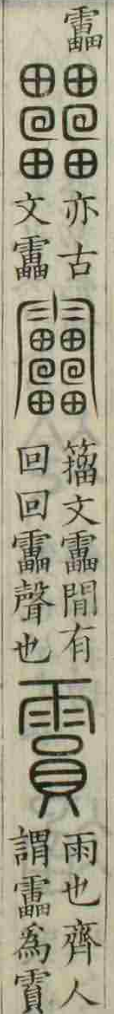 靁
亦古
文靁
籀文靁閒有
回回靁聲也
霣
雨也齊人
謂靁爲霣